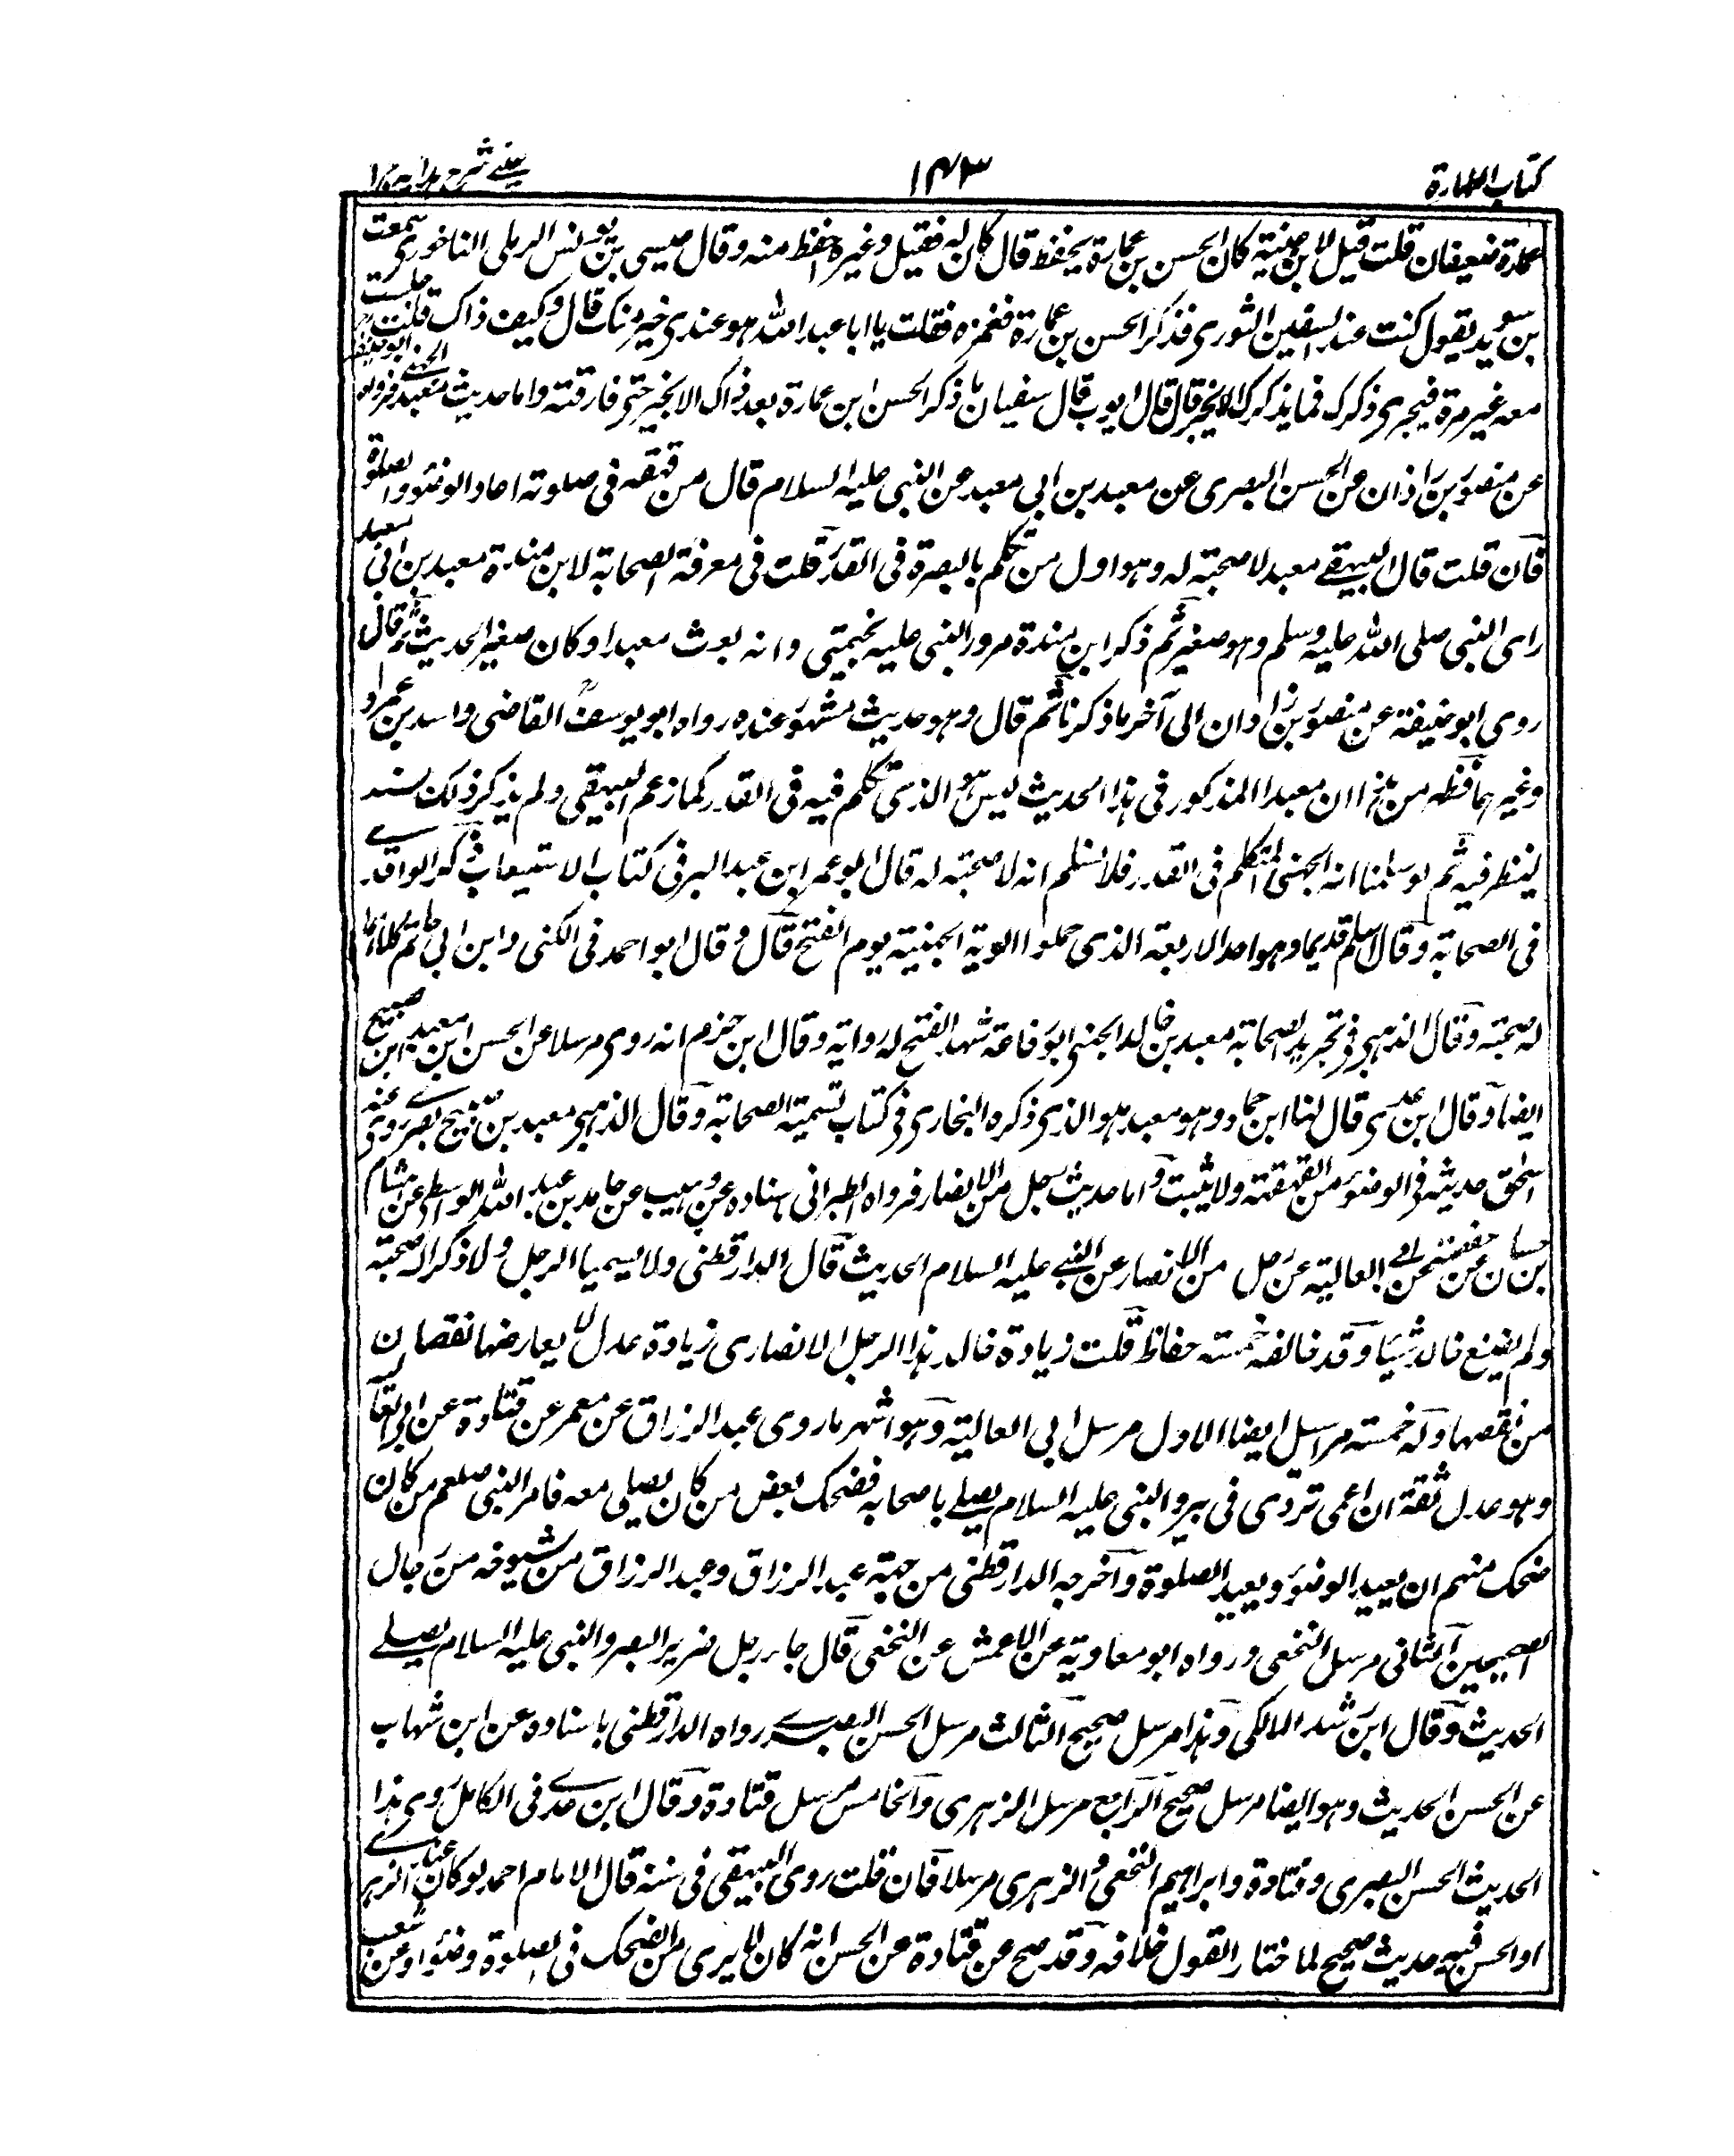 كتاب الطهارة ١٤٣ عينى شرح هدايه ج١
عمارة ضعيفان قلت قيل لابن عيينة كان الحسن بن عمارة يحفظ قال كان له فقيل وغيره احفظ منه وقال عيسى بن يونس الرملى الفاخورى سمعت
بن سويد يقول كنت عند سفين الثورى فذكر الحسن بن عمارة فغمزه فقلت يا ابا عبد الله هو عندى خير منك قال وكيف ذاك قلت جلست
معه غير مرة فيجرى ذكرك فما يذكرك الا بخير قال قال ايوب قال سفيان ما ذكر الحسن ابن عمارة بعد ذاك الا بخير حتى فارقته واما حديث معبد الجهنى فرواه ابو حنيفة
عن منصور بن زاذان عن الحسن البصرى عن معبد بن ابى معبد عن النبى عليه السلام قال من قهقه فى صلوته اعاد الوضوء والصلوة
فان قلت قال البيهقى معبد لا صحبته له وهو اول من تكلم بالبصرة فى القدر قلت فى معرفة الصحابة لابن مندة معبد بن ابى معبد
راى النبى صلى الله عليه وسلم وهو صغير ثم ذكر ابن مندة مرور النبى عليه بخيمتى وانه بعث معبدا وكان صغيرا الحديث ثم قال
روى ابو حنيفة عن منصور بن زاذان الى آخر ما ذكرنا ثم قال وهو حديث مشهور عنده رواه ابو يوسف القاضى واسد بن عمرو
وغيرهما فظهر من هذا ان معبدا المذكور فى هذا الحديث ليس هو الذى تكلم فيه فى القدر كما زعم البيهقى ولم يذكر ذلك بسند
لينظر فيه ثم لو سلمنا انه الجهنى المتكلم فى القدر فلا نسلم انه لا صحبته له قال ابو عمر ابن عبد البر فى كتاب الاستيعاب ذكره الواقدى
فى الصحابة وقال اسلم قديما وهو احد الاربعة الذى حملوا الوية الجهنية يوم الفتح قال وقال ابو احمد فى الكنى وابن ابى حاتم كلاهما
له صحبته وقال الذهبى فى تجريد الصحابة معبد بن خالد الجهنى ابو رفاعة شهد الفتح له رواية وقال ابن حزم انه روى مرسلا عن الحسن ابن معبد ابن صبيح
ايضا وقال ابن عدى قال لنا ابن حماد وهو معبد هو الذى ذكره البخارى فى كتاب تسمية الصحابة وقال الذهبى معبد بن صبيح بصرى روى عنه
اسحق حديثه فى الوضوء من القهقهة ولا يثبت واما حديث رجل من الانصار فرواه الطبرانى باسناده عن وهيب عن خالد بن عبد الله الواسطى عن هشام
بن حسان عن حفصة عن ابى العالية عن رجل من الانصار عن النبى عليه السلام الحديث قال الدارقطنى ولا يسميا الرجل ولا ذكر اله صحبته
ولم يضع خالد شيئا وقد خالفه خمسته حفاظ قلت زيادة خالد هذا الرجل الانصارى زيادة عدل لا يعارضها نقصان
من نقصها وله خمسته مراسيل ايضا الاول مرسل ابى العالية وهو اشهر ما روى عبد الرزاق عن معمر عن قتادة عن ابى العالية
وهو عدل ثقة ان اعمى تردى فى بير والنبى عليه السلام يصلى باصحابه فضحك بعض من كان يصلى معه فامر النبى صلعم من كان
ضحك منهم ان يعيد الوضوء ويعيد الصلوة واخرجه الدارقطنى من جهة عبد الرزاق وعبد الرزاق من شيوخه من رجال
الصحيحين الثانى مرسل النخعى ورواه ابو معاوية عن الاعمش عن النخعى قال جاء رجل ضرير البصر والنبى عليه السلام يصلى
الحديث وقال ابن رشد المالكى وهذا مرسل صحيح الثالث مرسل الحسن البصرى رواه الدارقطنى باسناده عن ابن شهاب
عن الحسن الحديث وهو ايضا مرسل صحيح الرابع مرسل الزهرى والخامس مرسل قتادة وقال ابن عدى فى الكامل روى هذا
الحديث الحسن البصرى وقتادة وابراهيم النخعى والزهرى مرسلا فان قلت روى البيهقى فى سننه قال الامام احمد لو كان عند الزهرى
او الحسن فيه حديث صحيح لما اختار القول خلافه وقد صح عن قتادة عن الحسن انه كان لا يرى من الضحك فى الصلوة وضوء او عن شعيب